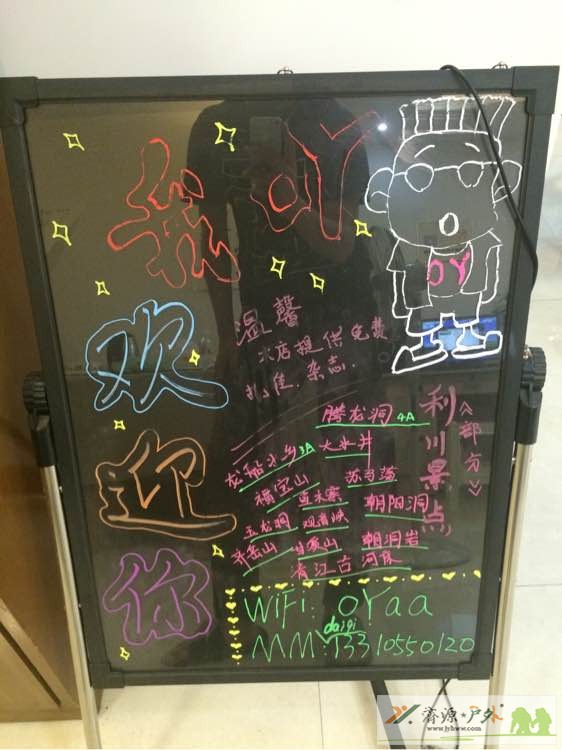 OY
欢
迎
你
温馨
本店提供免费
杂志.
利川景点
《部方》
腾龙洞 4A
龙船水乡 3A 大水井
福宝山 鱼木寨 苏马荡
玉龙洞 观音峡 朝阳洞
齐岳山 甘溪山 朝洞岩
清江古河床
WiFi: OYaa
daiqi
MM: 13310550120
OY
济源★户外
www.jyhww.com